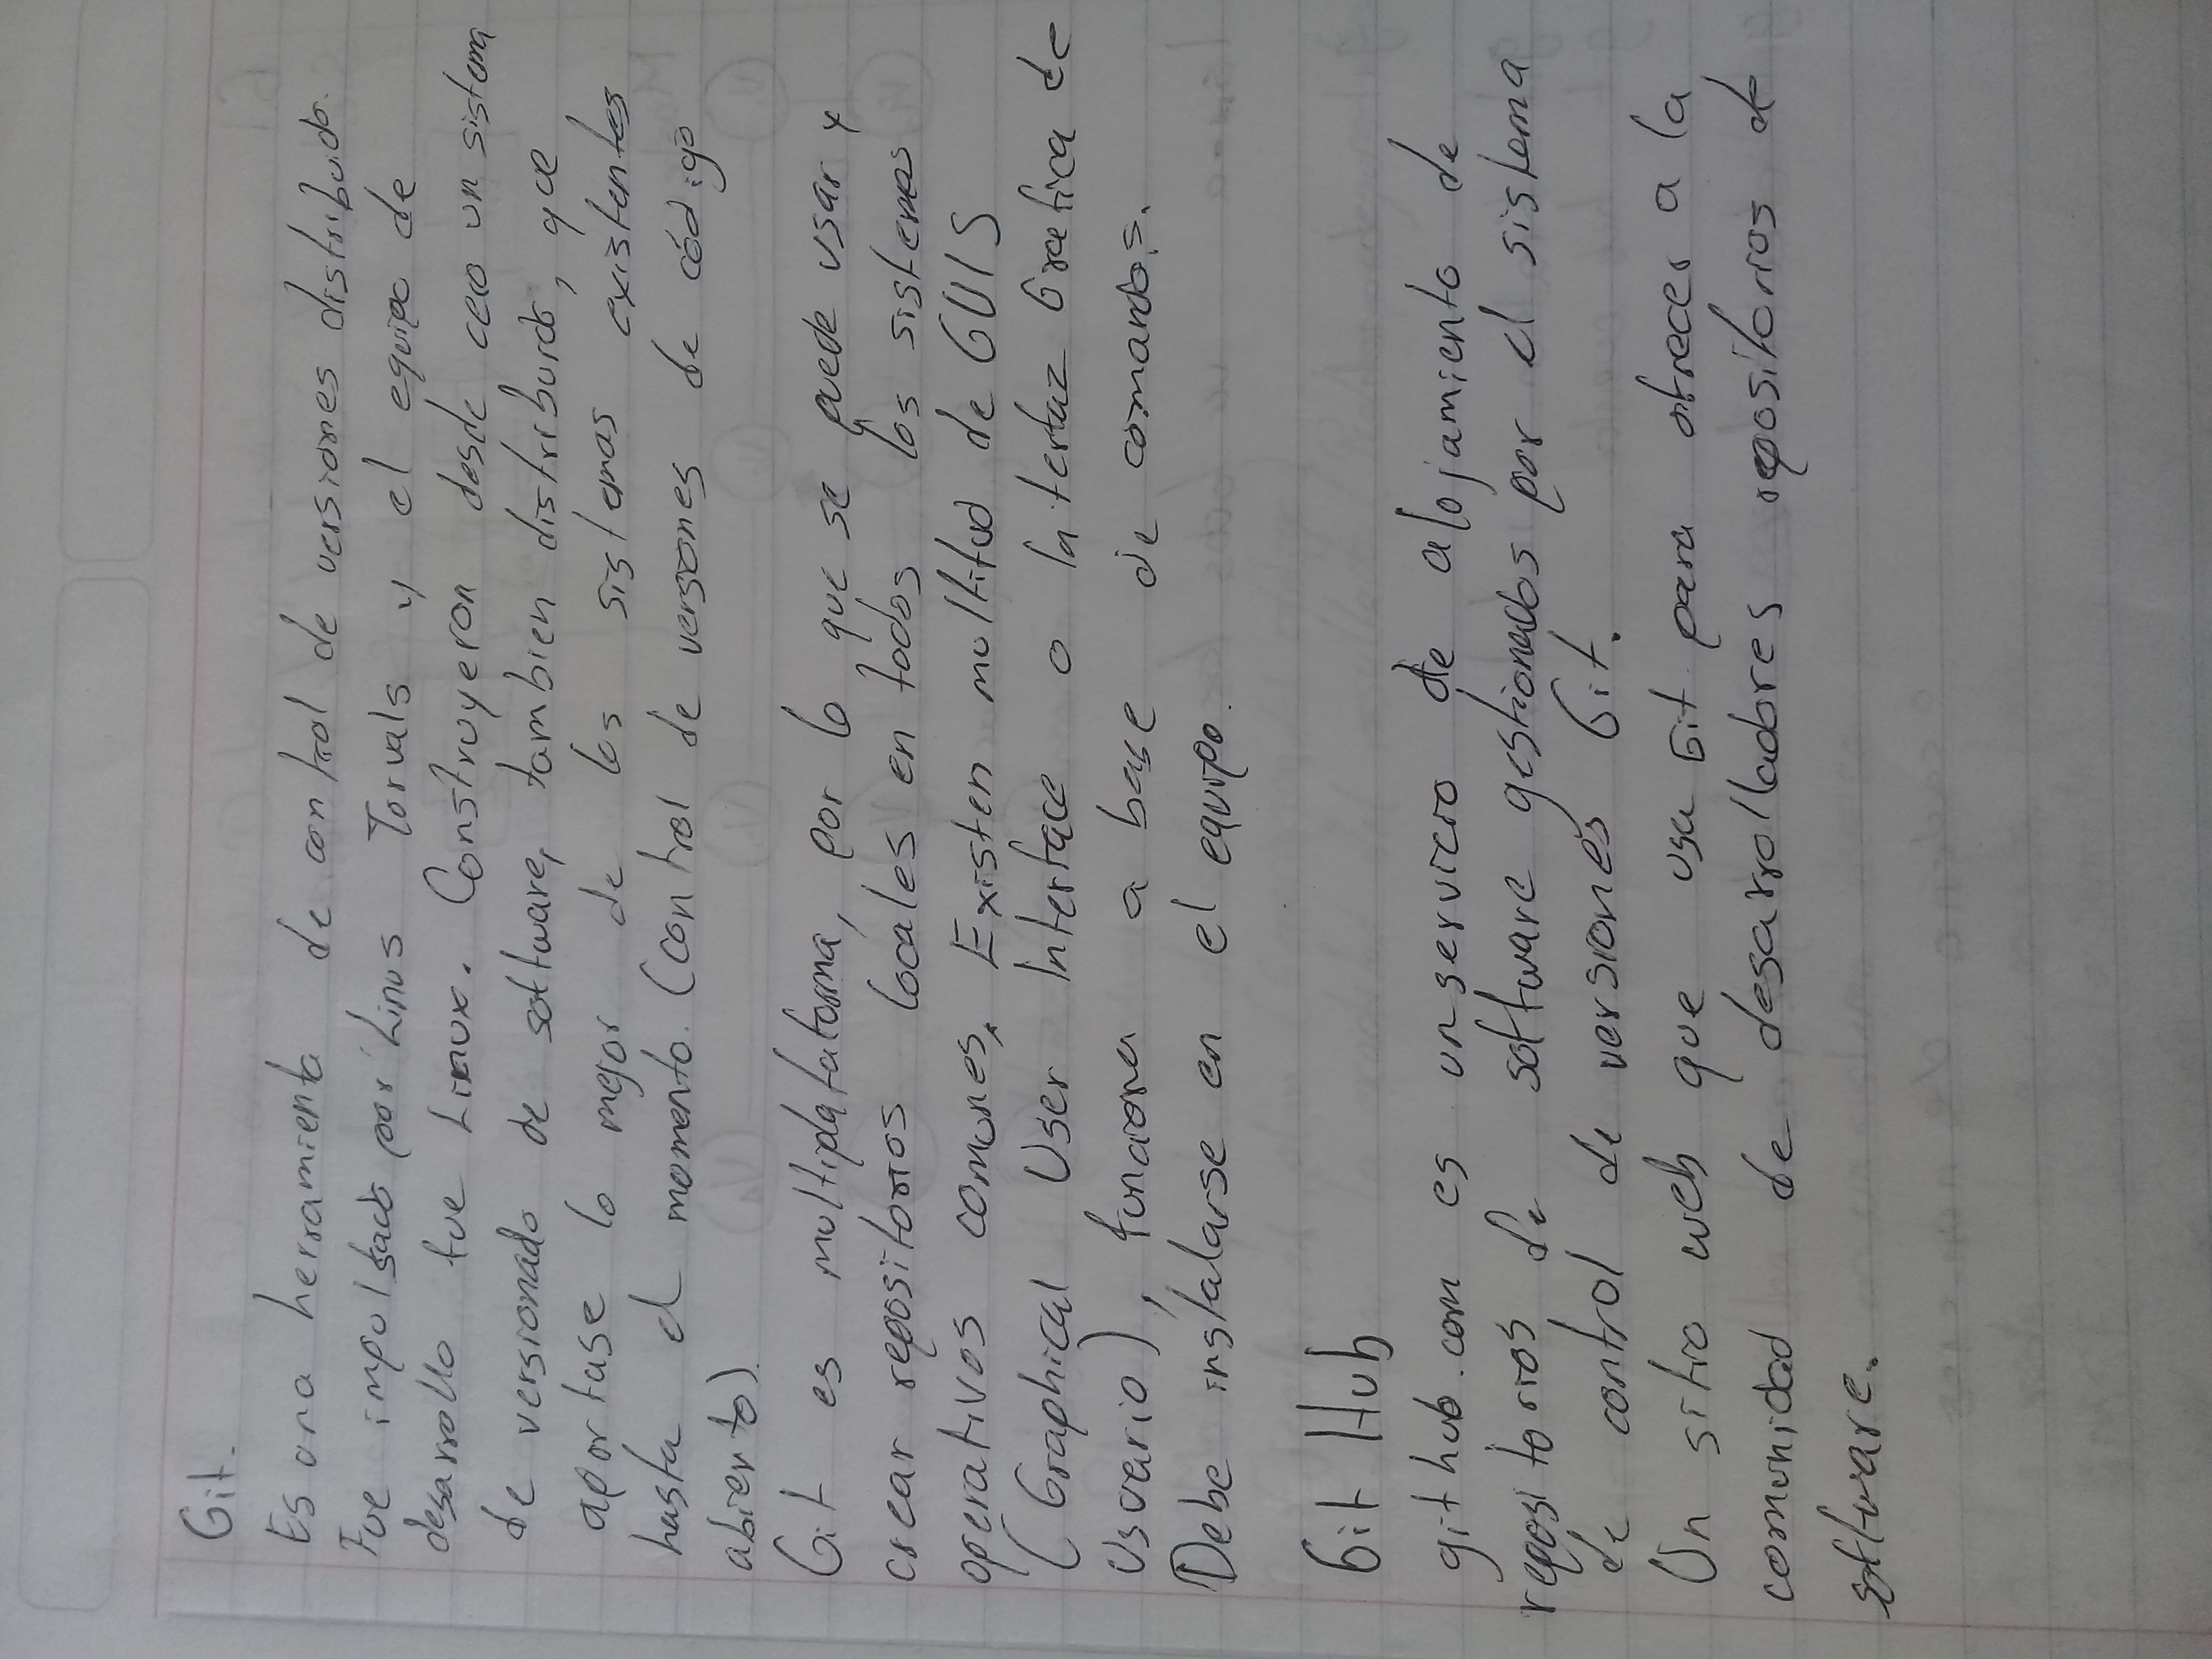 Git.
Es una herramienta de control de versiones distribuido.
Fue impulsado por Linus Torvals y el equipo de
desarrollo fue Linux. Construyeron desde cero un sistema
de versionado de software, tambien distribuido, que
aportase lo mejor de los sistemas existentes
hasta el momento. (Control de versones de código
abierto).
Git es multiplataforma, por lo que se puede usar y
crear repositorios locales en todos los sistemas
operativos comunes. Existen multitud de GUIS
(Graphical User Interface o Interfaz Gráfica de
Usuario), funciona a base de comandos.
Debe instalarse en el equipo.
Git Hub
github.com es un servicio de alojamiento de
repositorios de software gestionados por el sistema
de control de versiones Git.
Un sitio web que usa Git para ofrecer a la
comunidad de desarrolladores repositorios de
software.